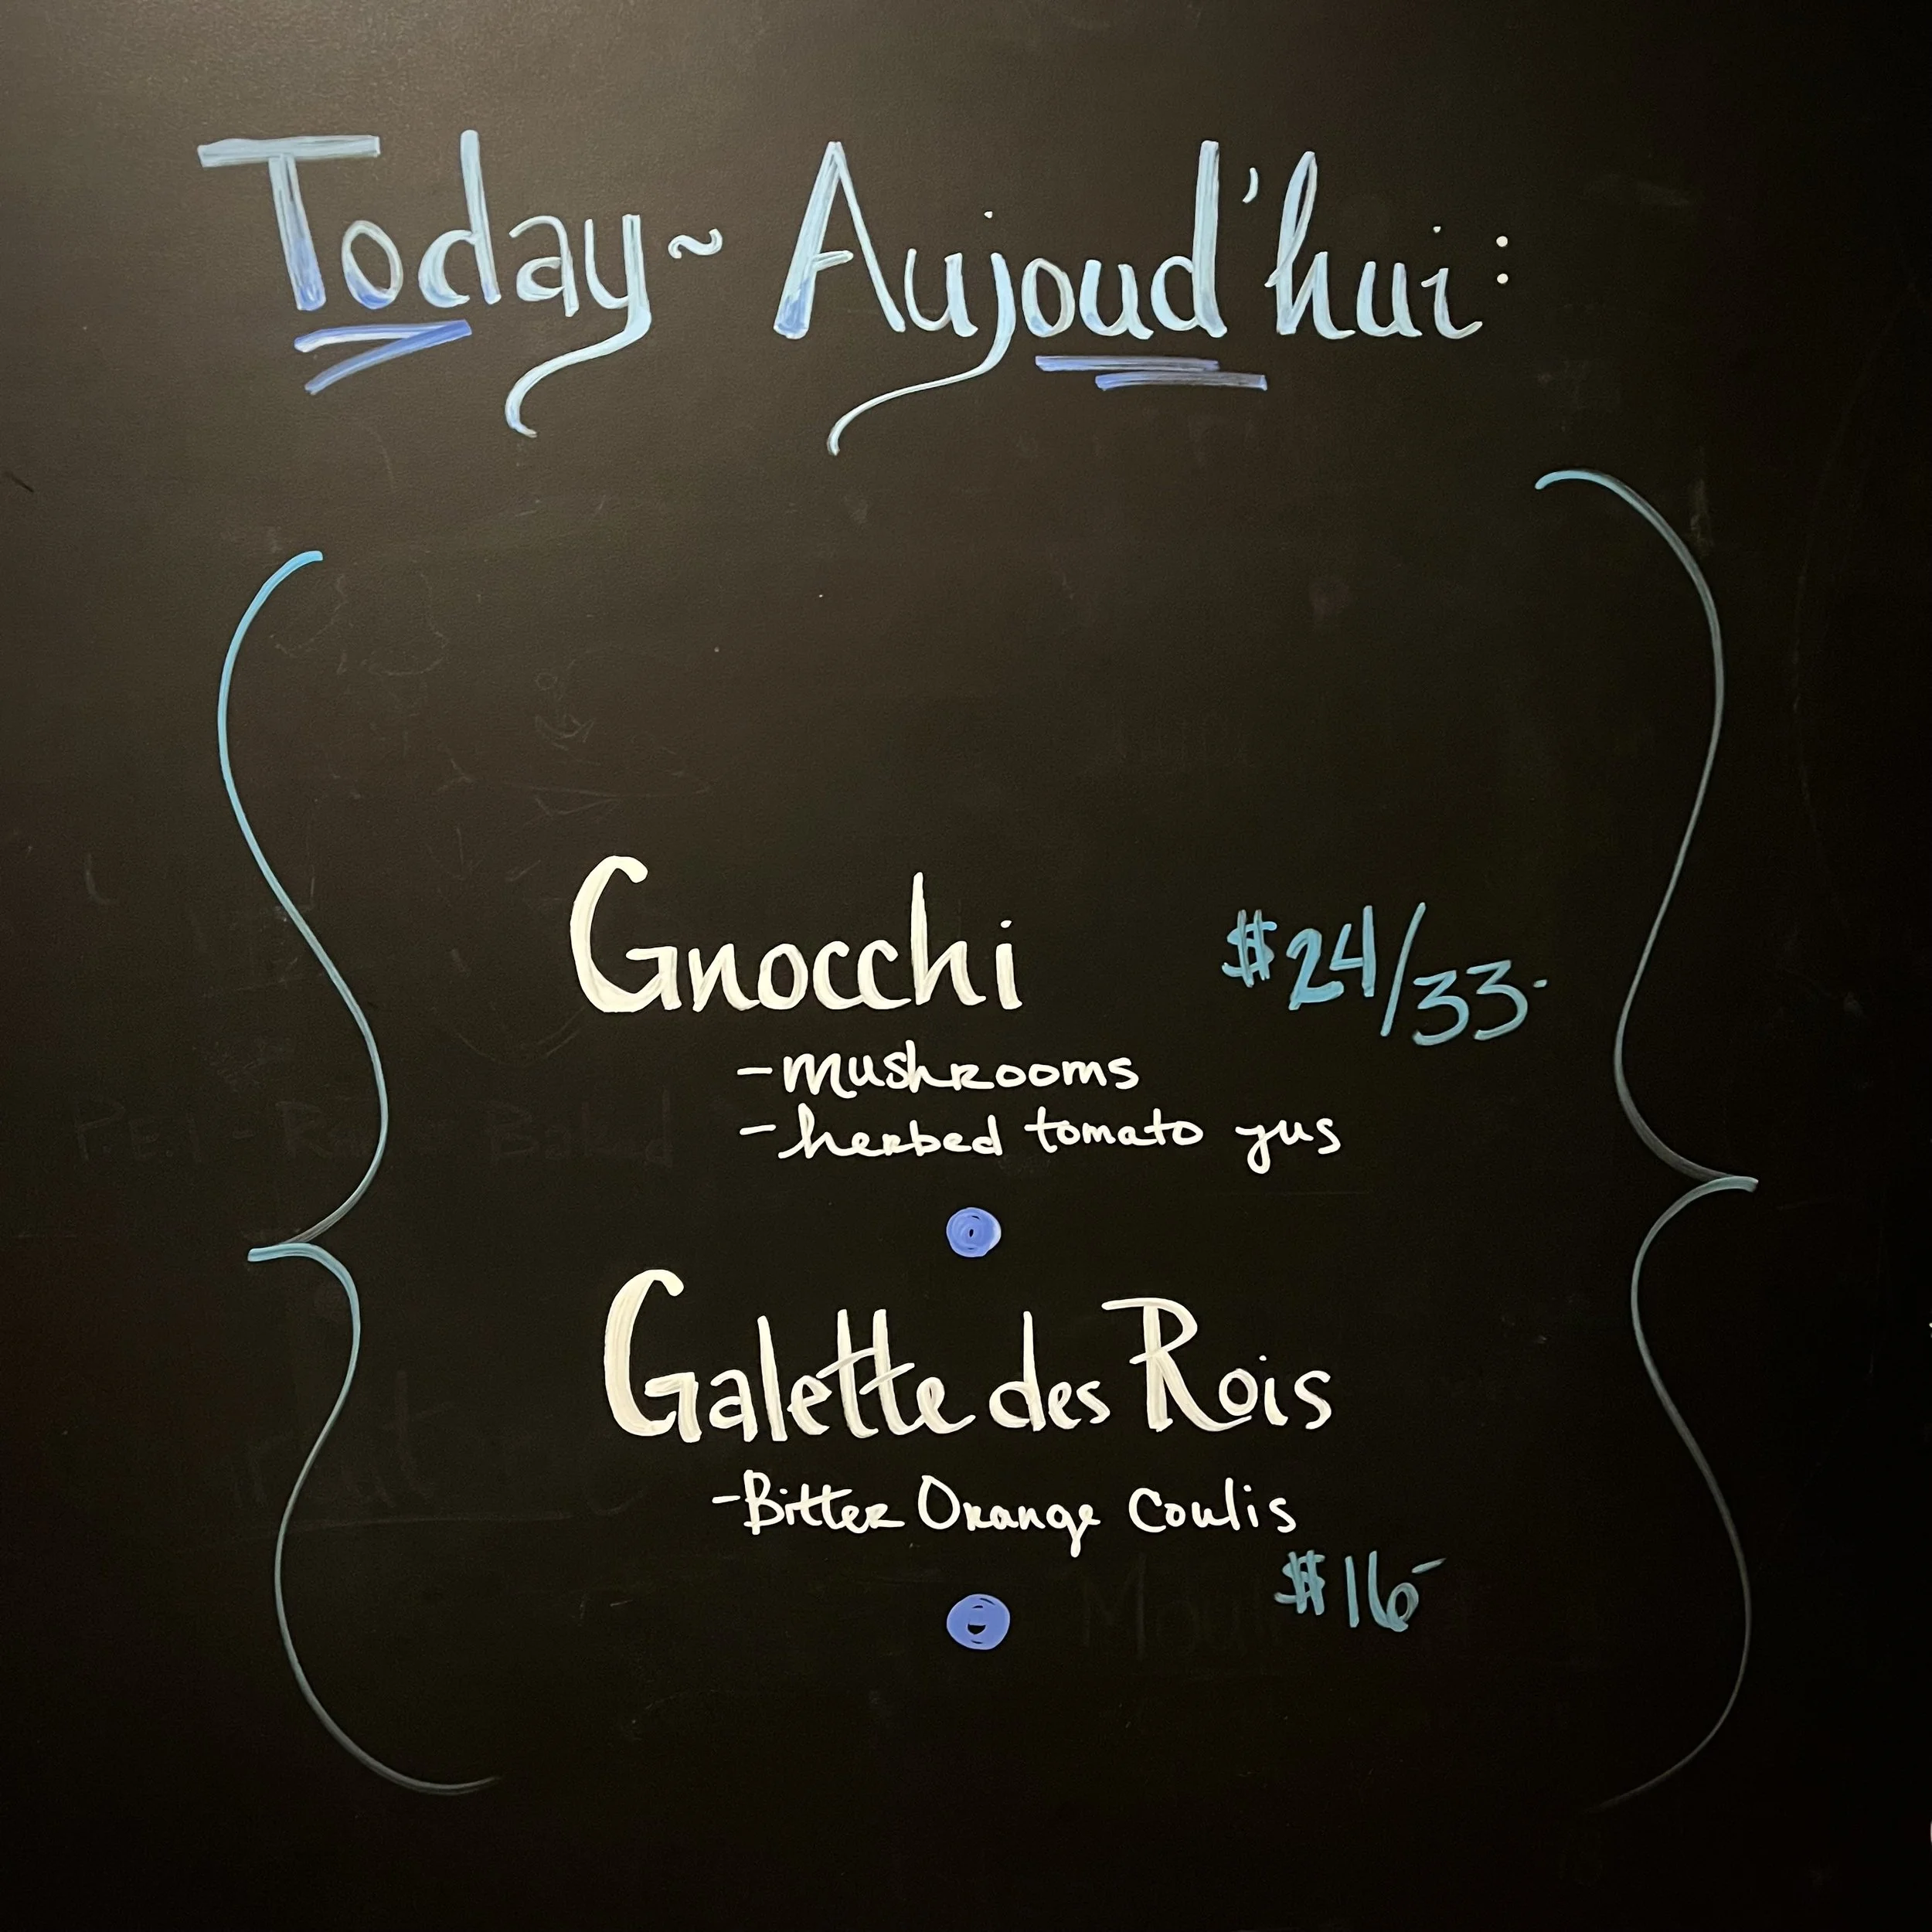 Today ~ Aujoud'hui:
Gnocchi $24/33-
- mushrooms
- herbed tomato jus
Galette des Rois
- Bitter Orange Coulis
$16-